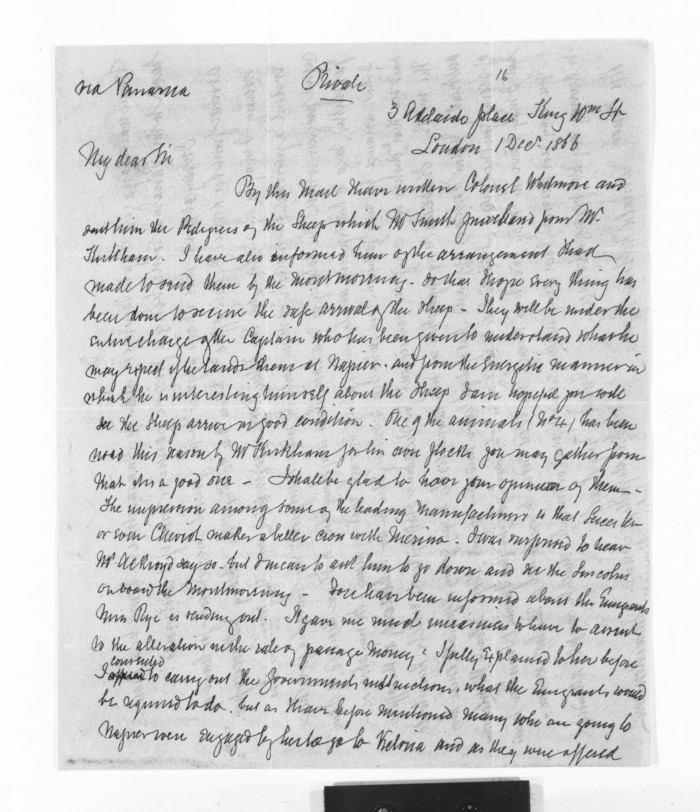 via Panama
Private
16
3 Adelaide place King Wm St
London 1 Decr. 1866
My dear Sir
By this Mail I have written Colonel Whitmore and
sent him the Pedigrees of the Sheep which Mr Smith purchased from Mr
Kirkham. I have also informed him of the arrangement I had
made to send them by the Montmorency - So that I hope every thing has
been done to secure the safe arrival of the Sheep - They will be under the
entire charge of the Captain who has been given to understand what he
may expect if he lands them at Napier - and from the Energetic manner in
which he is interesting himself about the Sheep I am hopeful you will
see the Sheep arrive in good condition. One of the animals (No 4) has been
used this season by Mr Kirkham for his own flocks you may gather from
that it is a good one - I shall be glad to have your opinion of them -
The impression among some of the leading Manufacturers is that Leicester
or even Cheviot makes a better cross with Merino. I was surprised to hear
Mr Ackroyd say so - but I mean to ask him to go down and see the Lincolns
on board the Montmorency - You have been informed about the Emigrants
Miss Rye is sending out. It gave me much uneasiness to have to assent
to the alteration in the rate of passage Money. I fully Explained to her before
consented
I to carry out the Governments instructions, what the Emigrants would
be required to do. but as I have before mentioned many who are going to
Napier were Engaged by her to go to Victoria and as they were offered